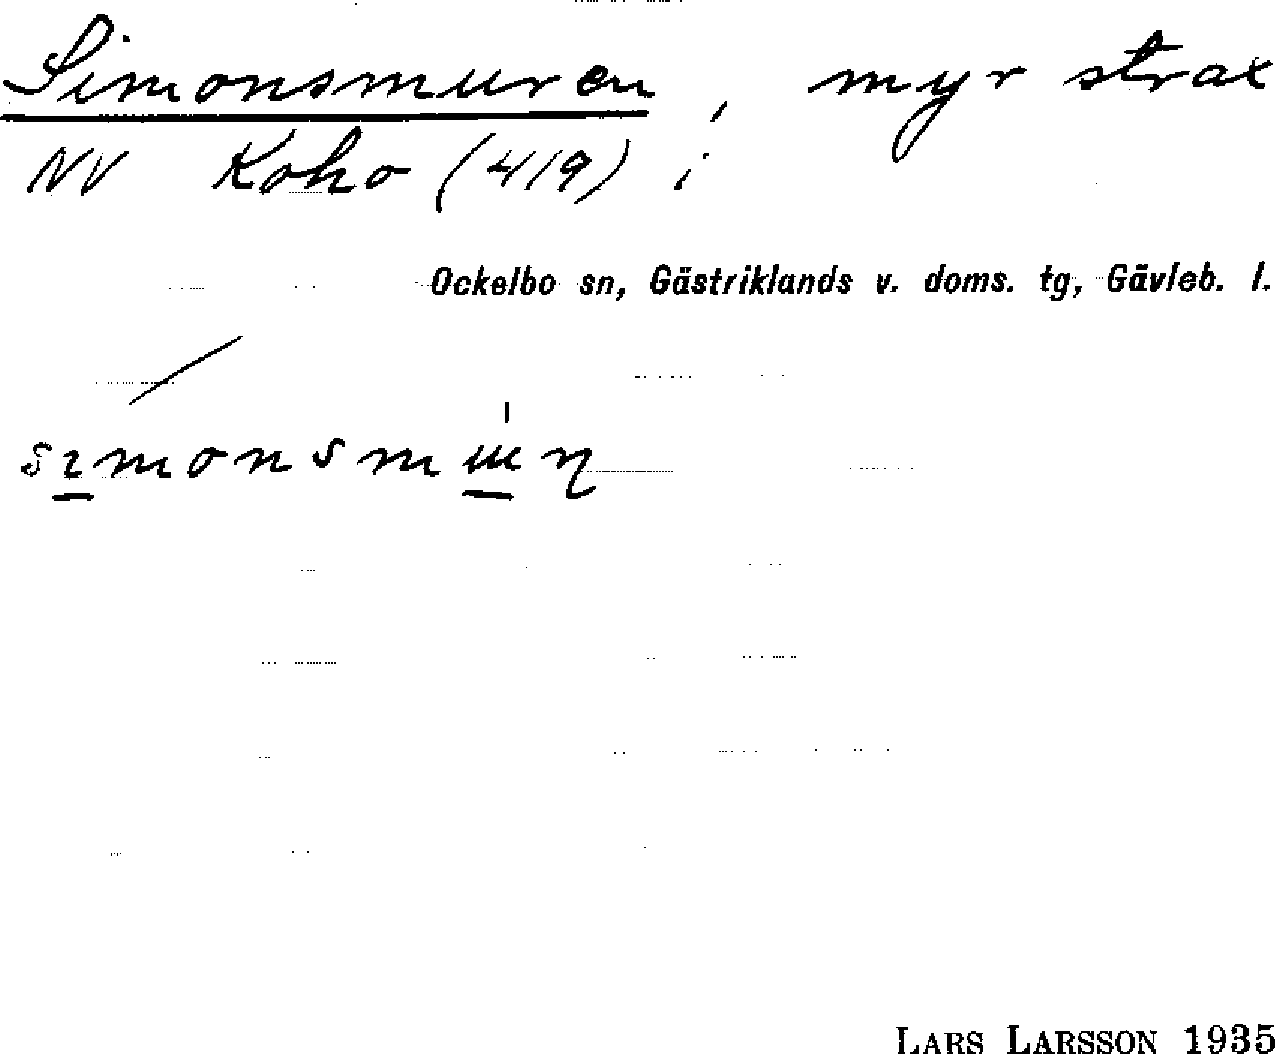 Simonsmuren, myr strax
NV Koho (419) i
Ockelbo sn, Gästriklands v. doms. tg, Gävleb. l.
LARS LARSSON 1935